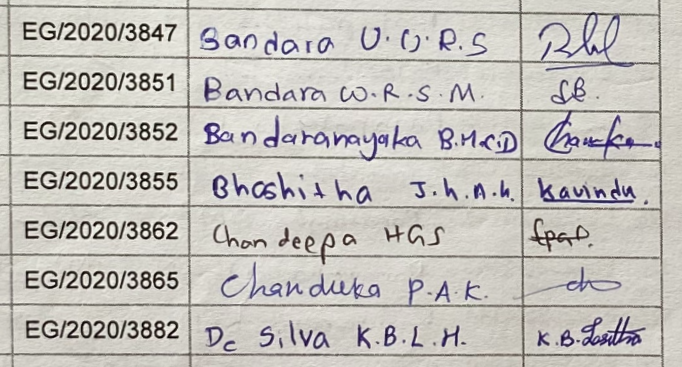 EG/2020/3847 Bandara U.O.R.S
EG/2020/3851 Bandara W.R.S.M. SB.
EG/2020/3852 Bandaranayaka B.M.C.D
EG/2020/3855 Bhashitha J.h.A.h. Kavindu.
EG/2020/3862 Chandeepa HGS
EG/2020/3865 Chandieka P.A.K.
EG/2020/3882 De Silva K.B.L.H. K.B.Lasitha